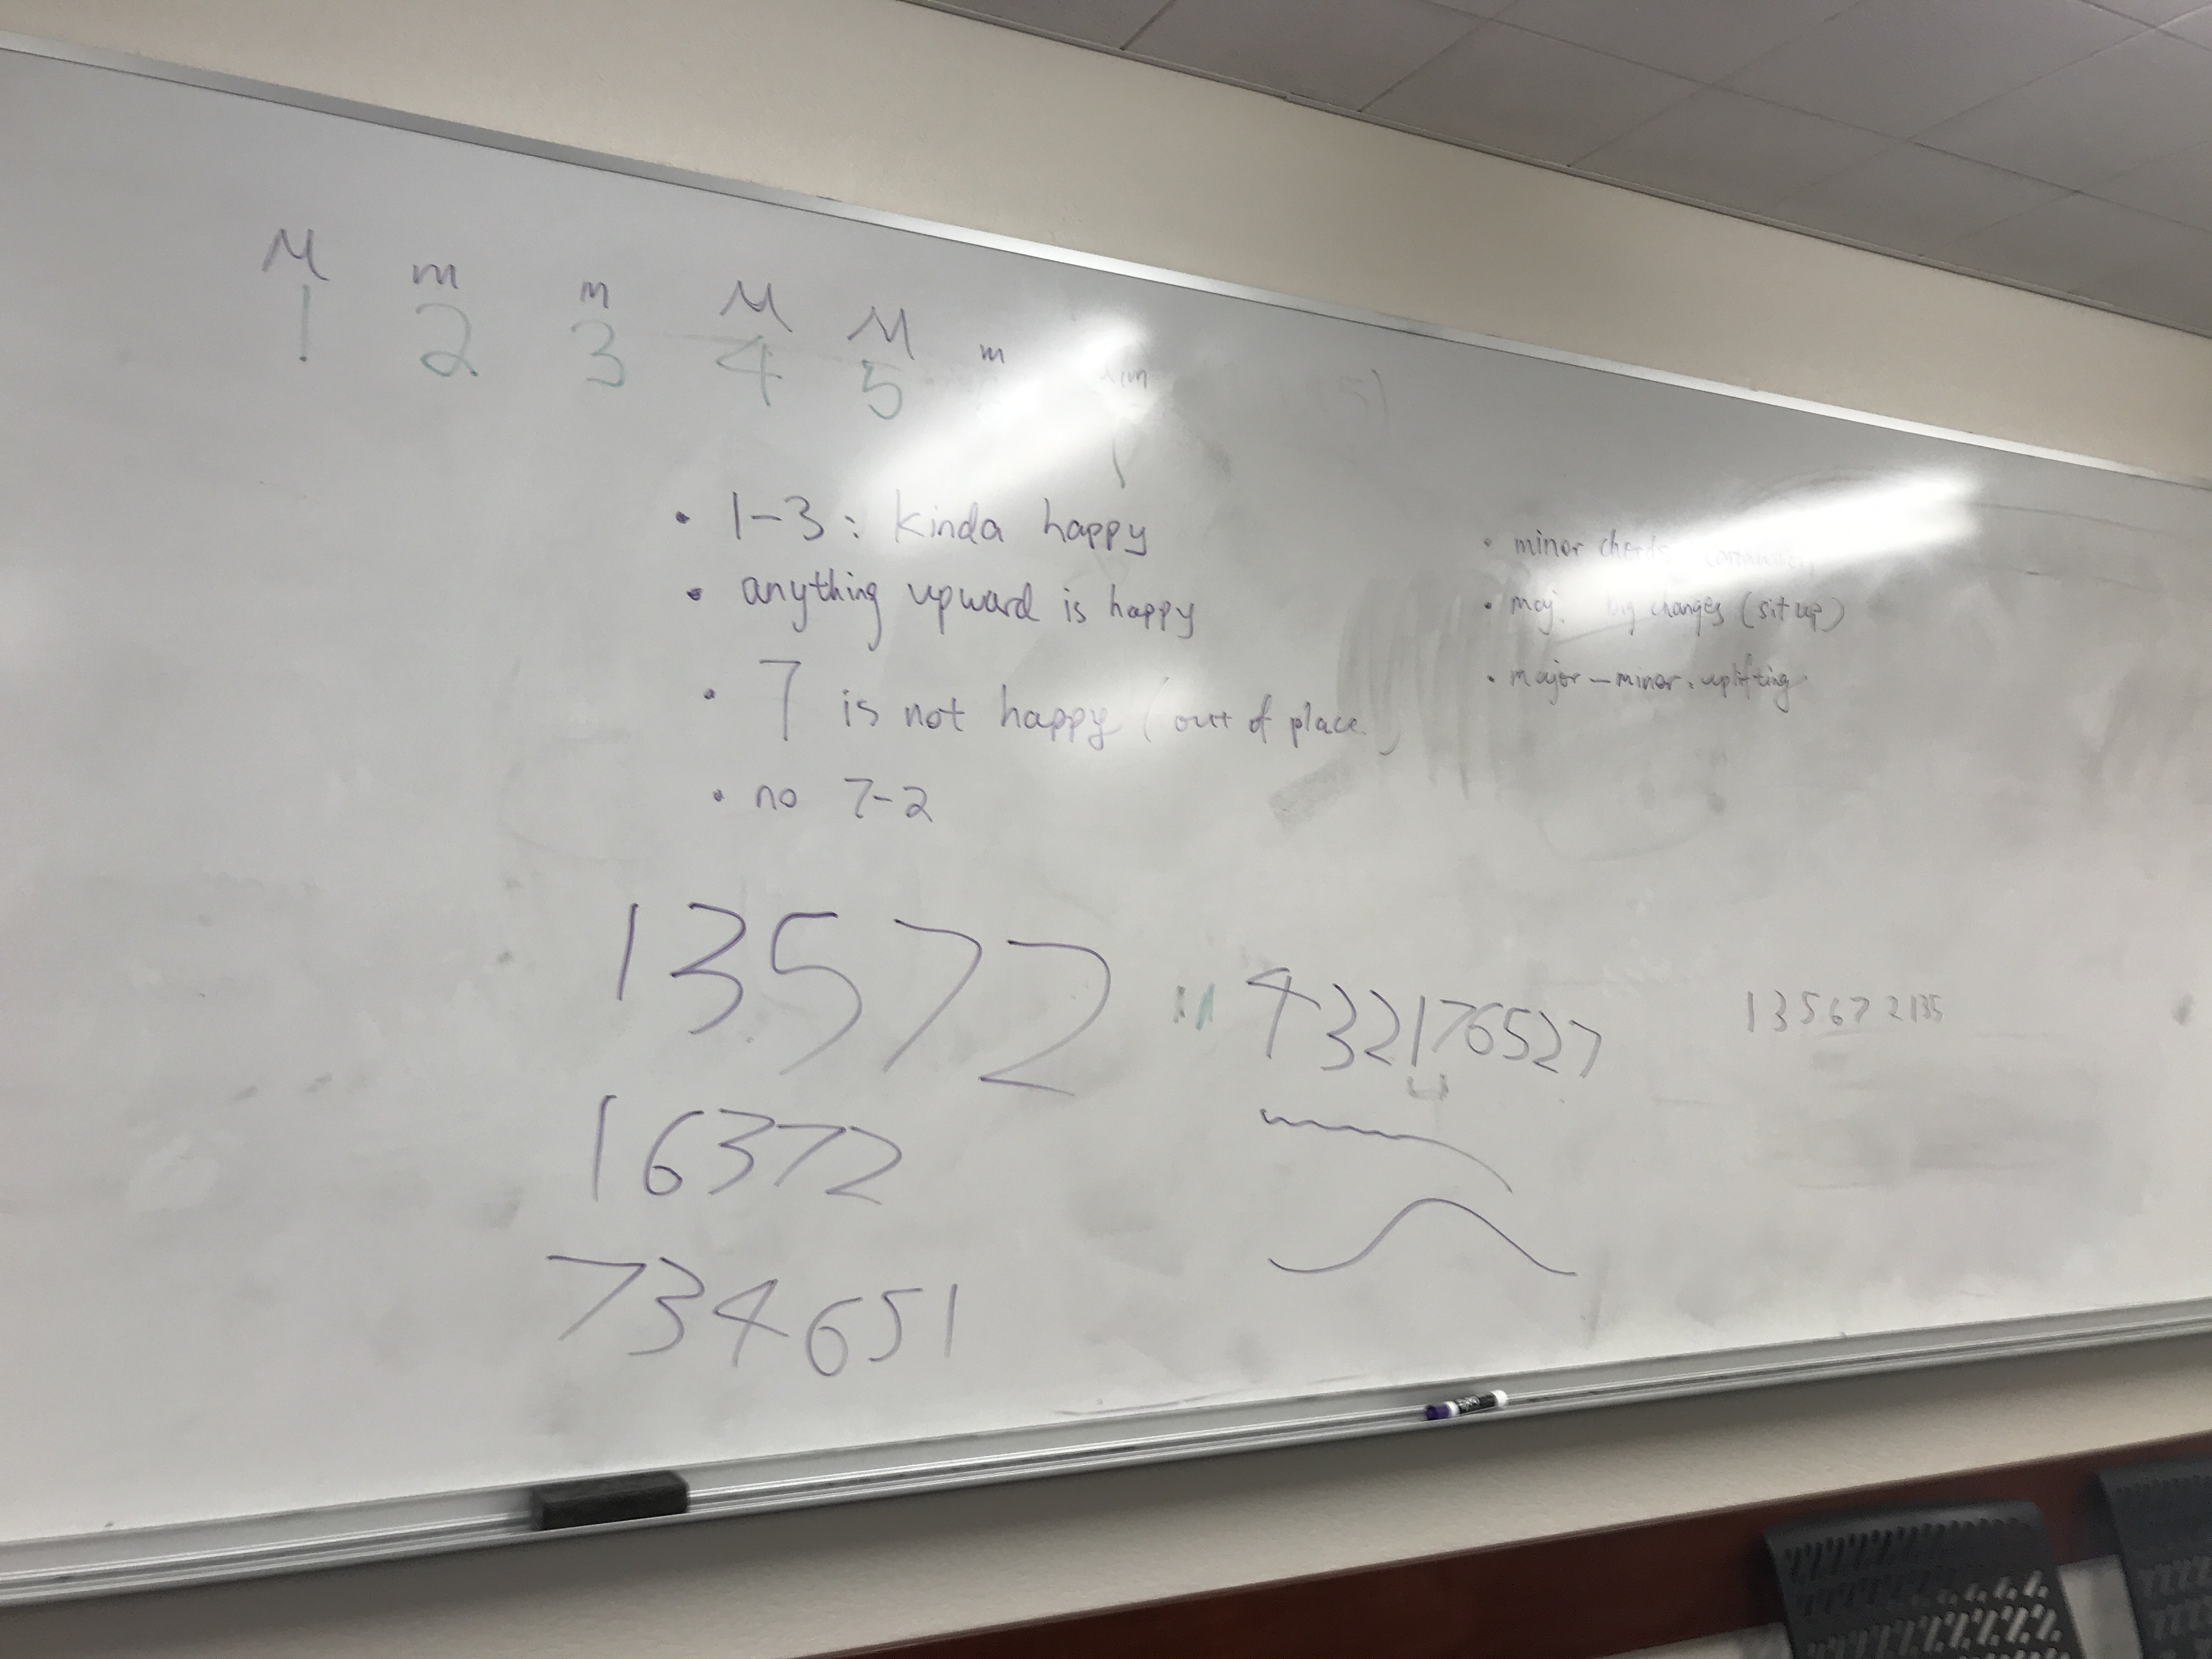 M m m M M m
1 2 3 4 5
• 1-3: kinda happy
• anything upward is happy
• 7 is not happy (out of place)
• no 7-2
• minor chords
• maj. big changes (sit up)
• major - minor. uplifting
13572
16372
734651
432176527
135672135